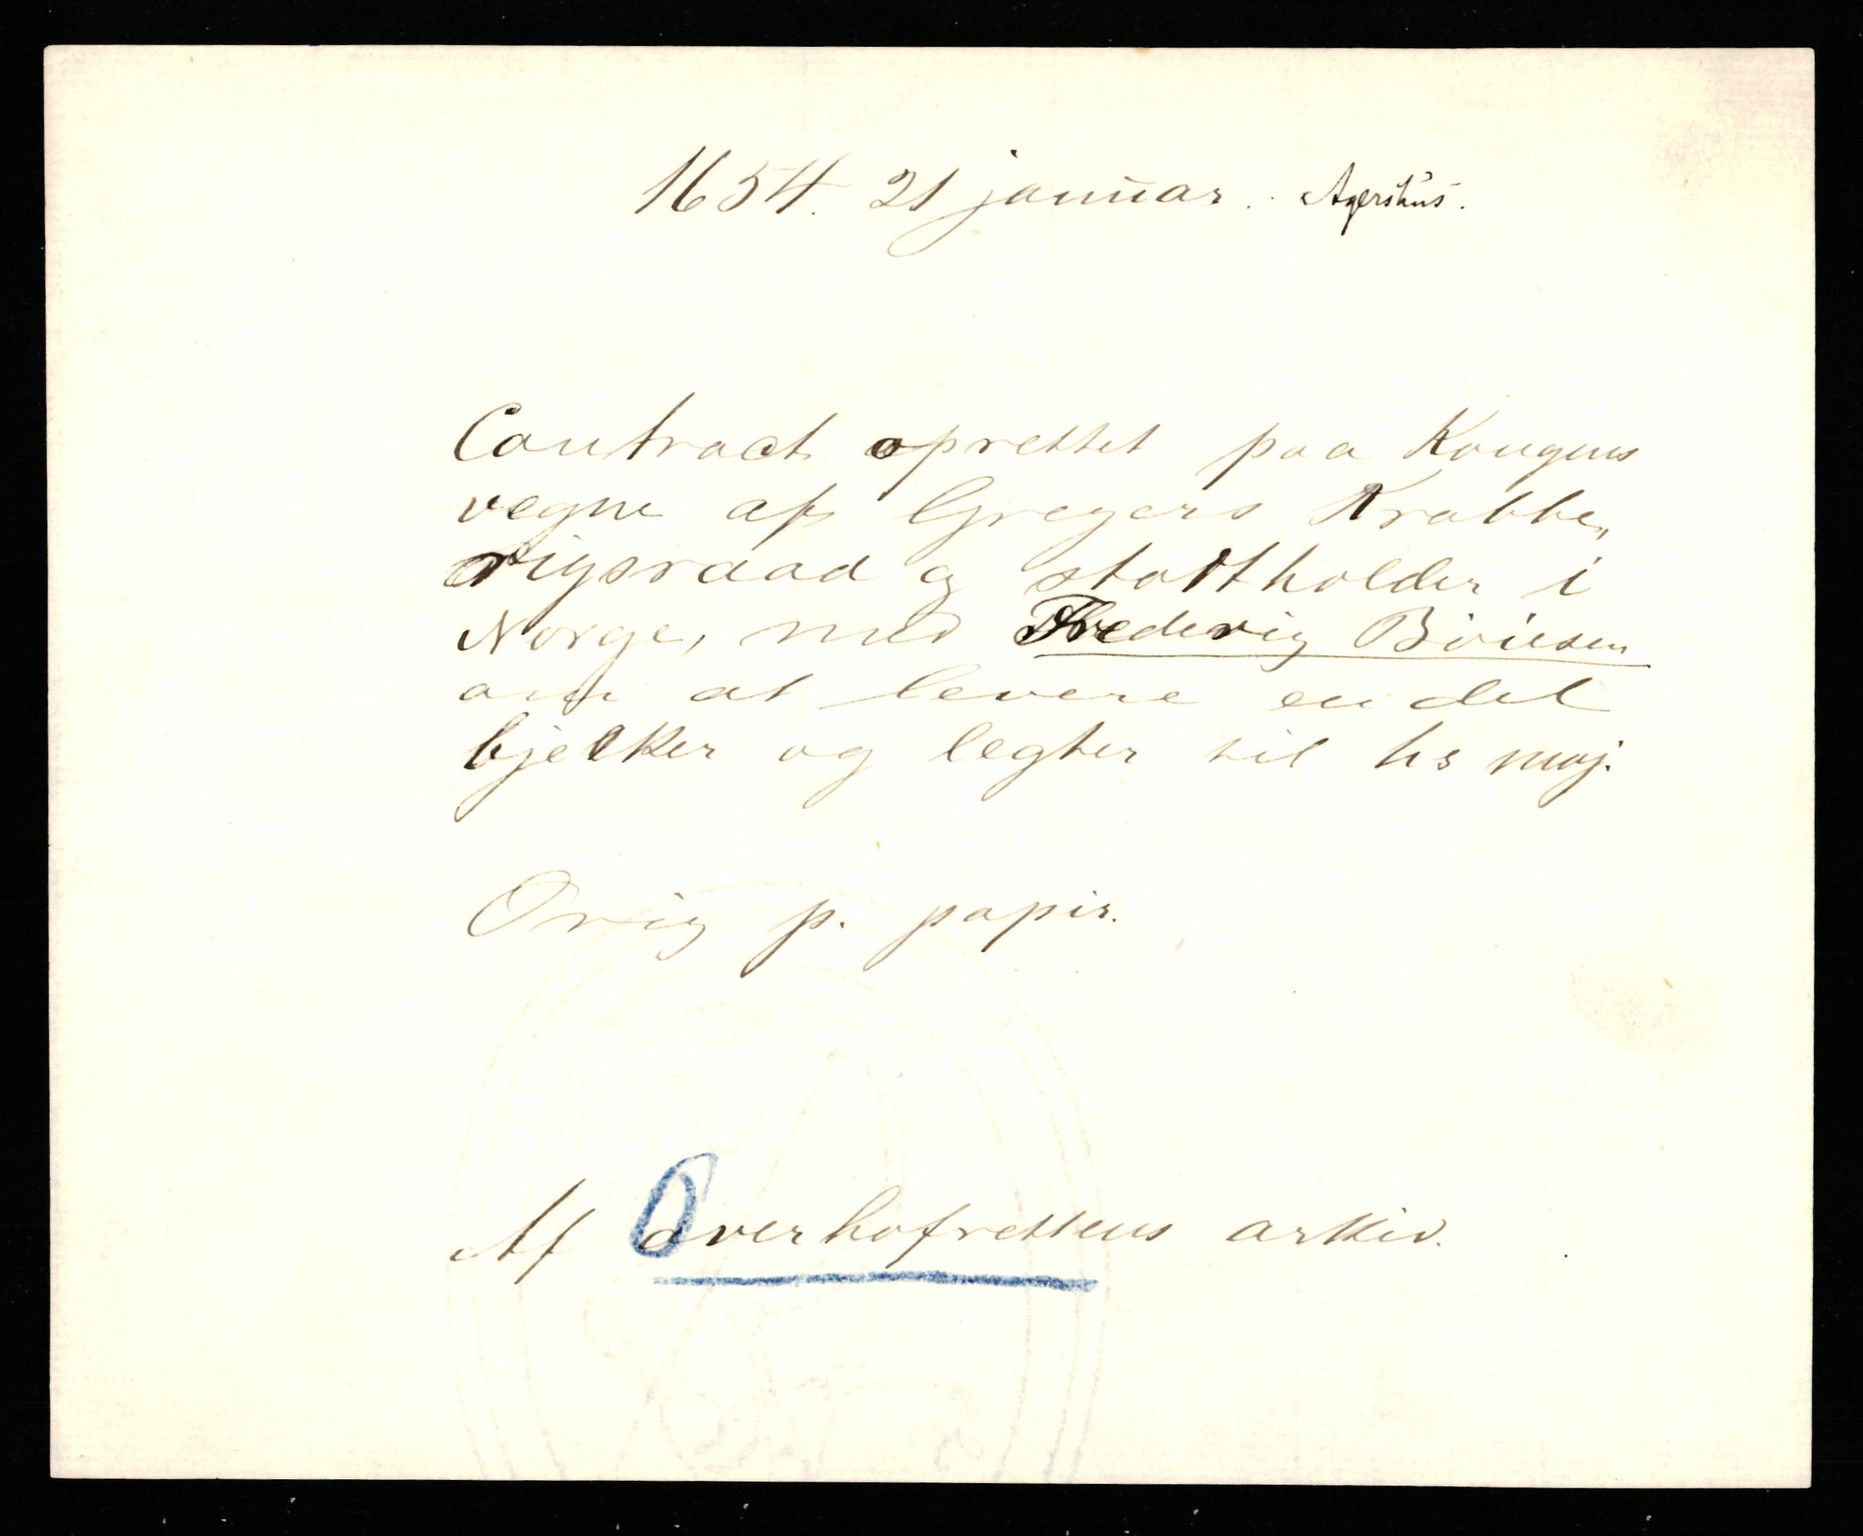 1654. 21 januar. Agershus.
Contract oprettet paa Kongens
vegne af Gregers Krabbe,
rigsraad og statholder i
Norge, med Frederig
om at levere en del
bjelker og legter til hs maj.
Orig p. papir.
Af Overhofrettens arkiv.